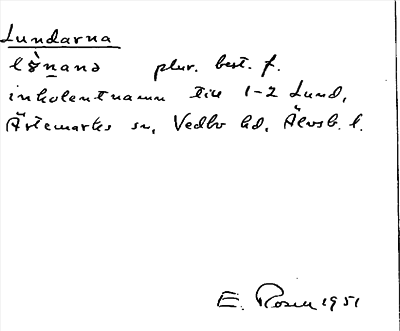 Lundarna
plur. best. f.
inkolentnamn till 1-2 Lund,
Ärtemarks sn, Vedbo hd, Älvsb. l.
E. Rosen 1951